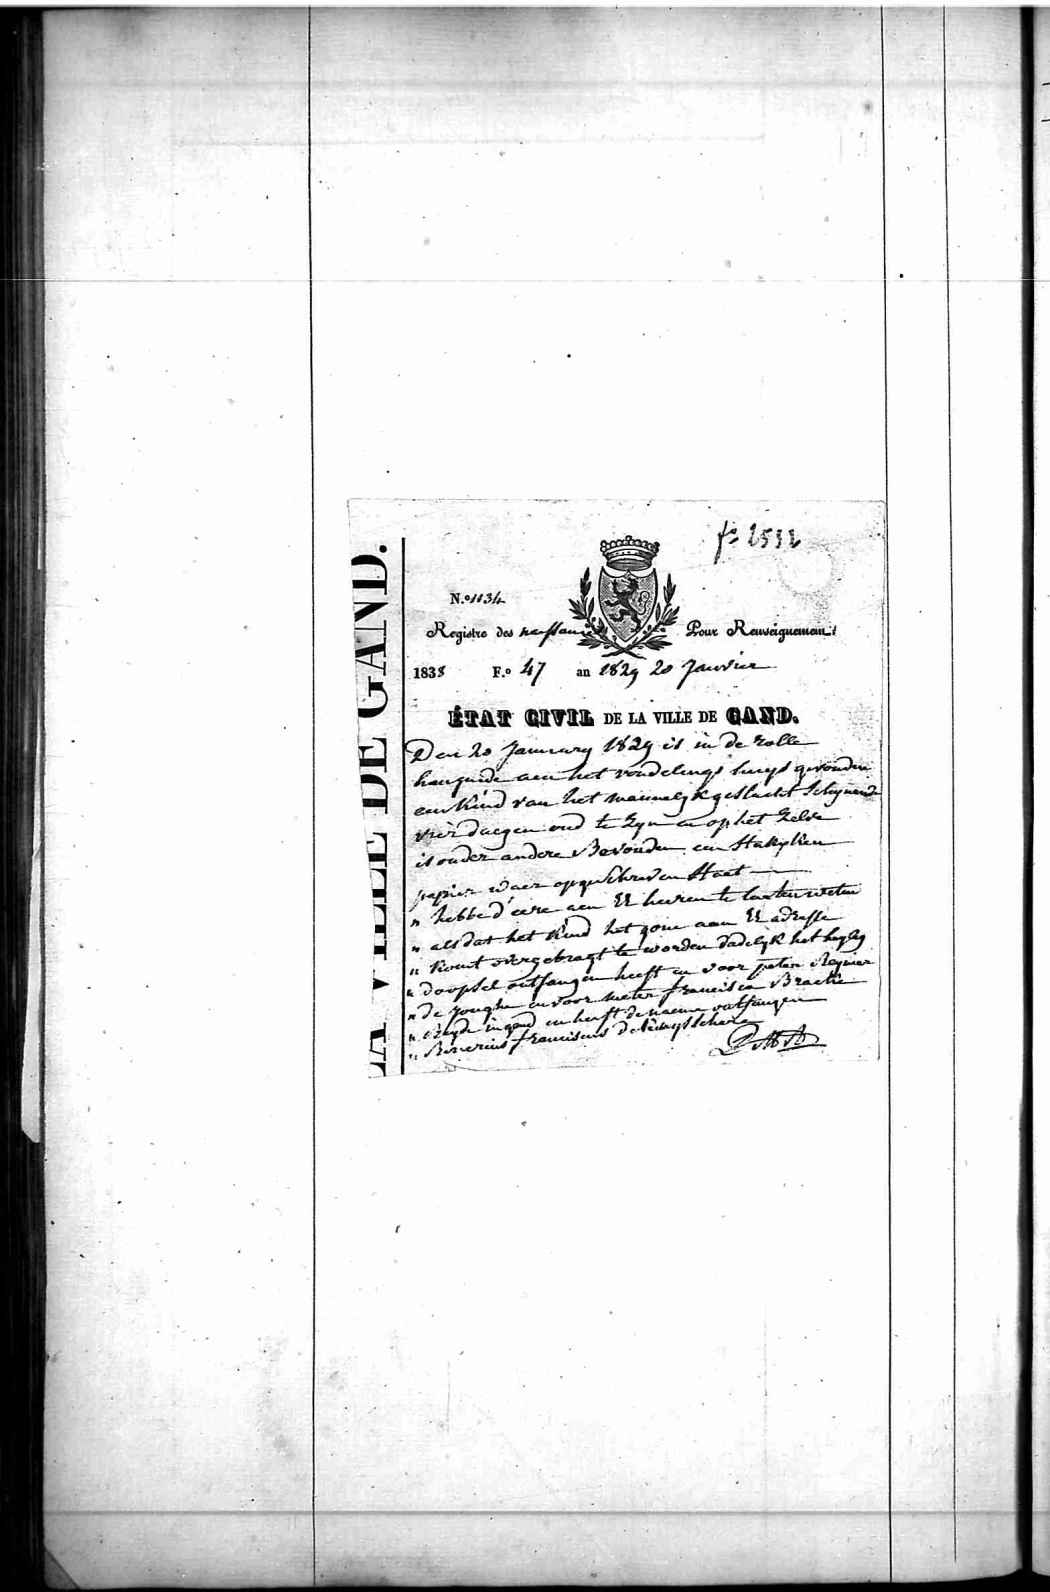 f.° 2532
N.° 1134
Registre des naissances Pour Renseignement
1838 F.° 47 an 1829 20 Janvier
ÉTAT CIVIL DE LA VILLE DE GAND.
Den 20 January 1829 is in de rolle
hangende aen het vondelings huys gevonden
een kind van het mannelyk geslacht schynende
vier daegen oud te zyn en op het zelve
is onder andere bevonden een stuksken
papier waer op geschreven staet
" hebbe d'eere aen UE heeren te laeten weten
" als dat het kind het gone aen UE adresse
" komt overgebragt te worden dadelyk het heylig
" doopsel ontfangen heeft en voor peter Reynier
" de Jonghe en voor meter francisca Brackê
" in gend en heeft de naeme ontfangen
" franciscus
LA VILLE DE GAND.